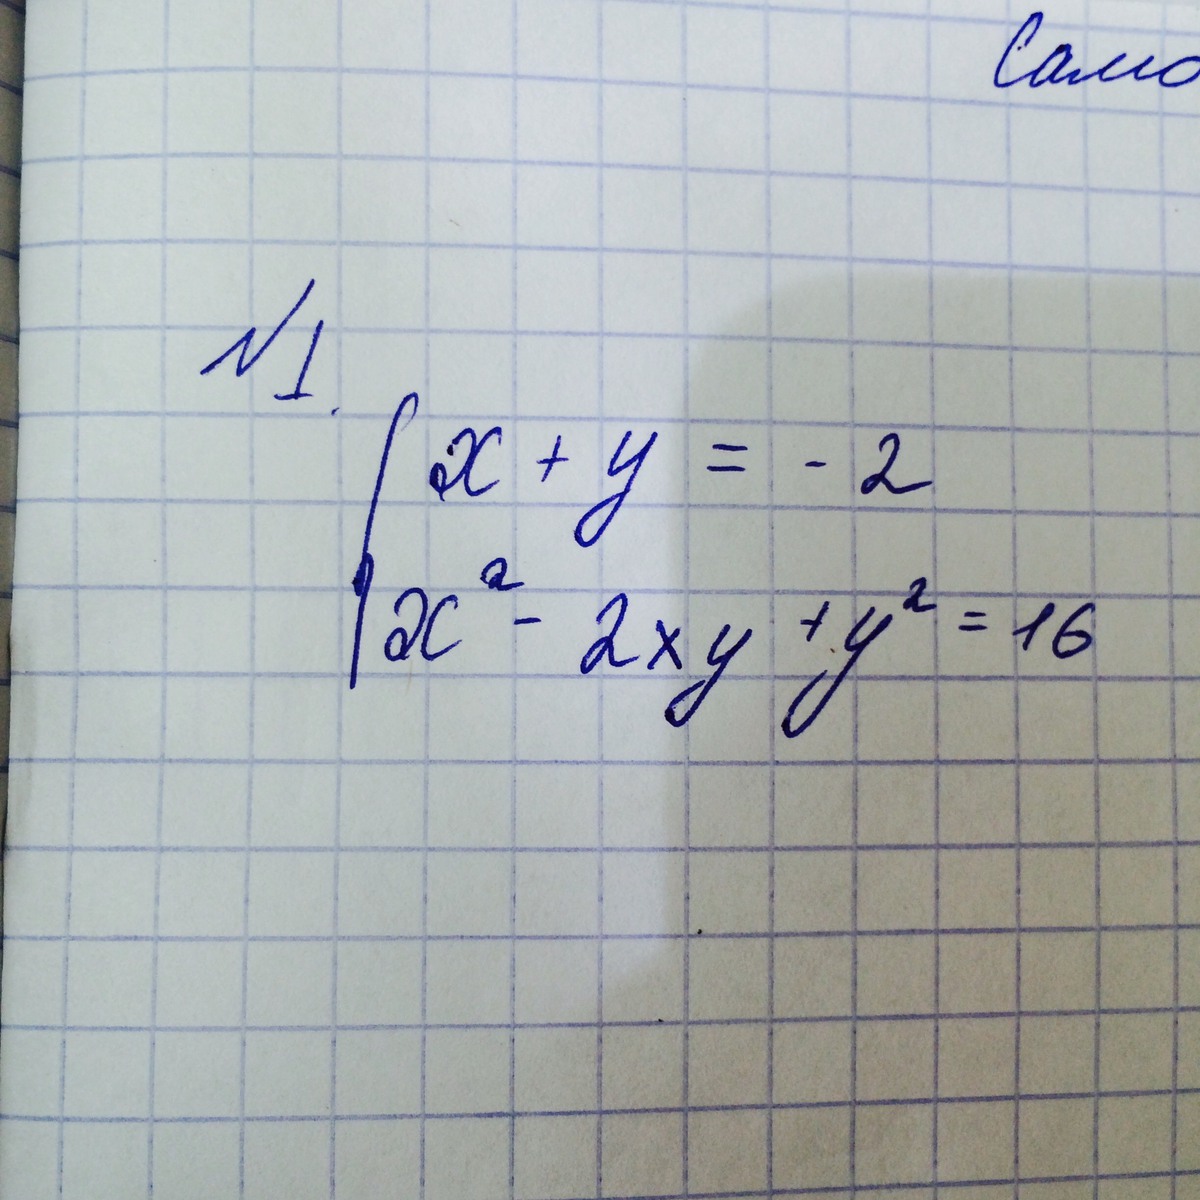 Само
№1.
x + y = - 2
x² - 2xy + y² = 16